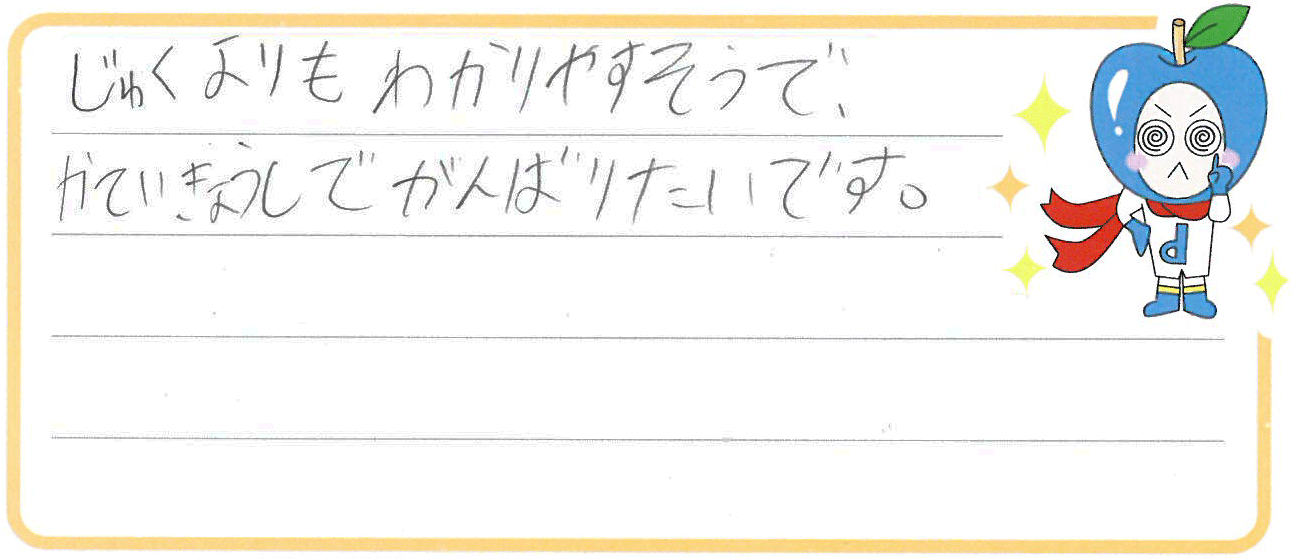 じゅくよりもわかりやすそうで、
かていきょうしでがんばりたいです。